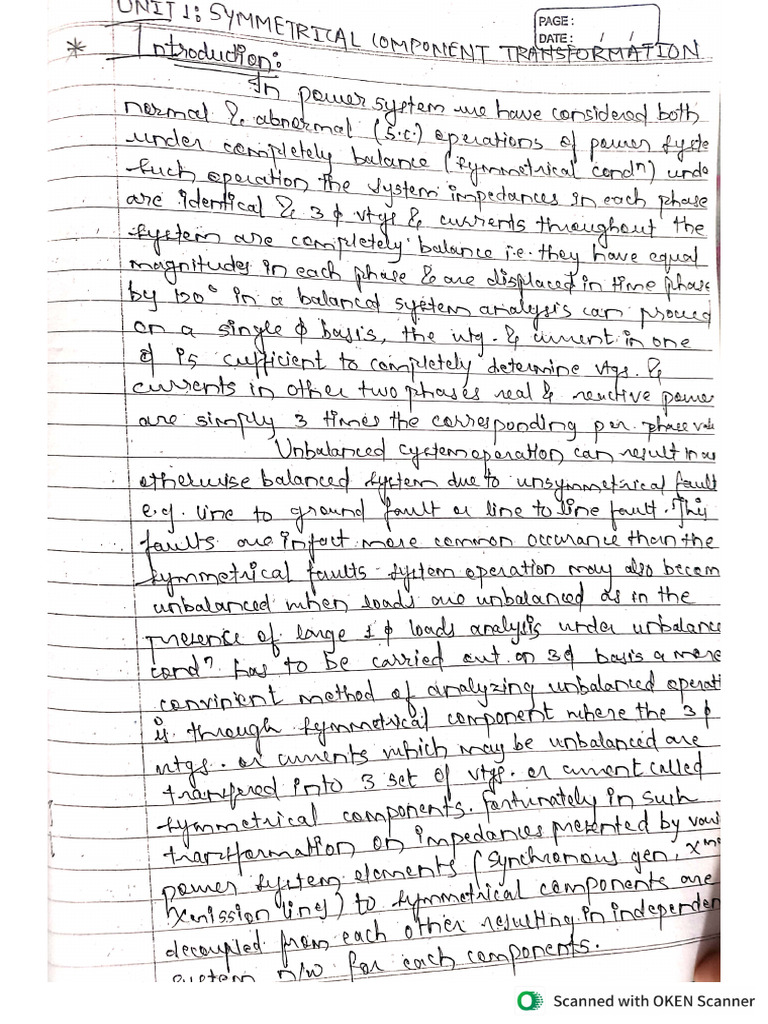 UNIT 1: SYMMETRICAL COMPONENT TRANSFORMATION
PAGE:
DATE: / /
* Introduction:
In power system we have considered both
normal & abnormal (s.c.) operations of power syste
under completely balance (symmetrical condⁿ) unde
such operation the system impedances in each phase
are identical & 3 ϕ vtgs & currents throughout the
system are completely balance i.e. they have equal
magnitudes in each phase & are displaced in time phase
by 120° in a balanced system analysis can proceed
on a single ϕ basis, the vtg. & current in one
ϕ is sufficient to completely determine vtgs. &
currents in other two phases real & reactive power
are simply 3 times the corresponding per. phase valu
Unbalanced system operation can result in an
otherwise balanced system due to unsymmetrical fault
e.g. line to ground fault or line to line fault. This
faults are infact more common occurance than the
symmetrical faults system operation may also becom
unbalanced when loads are unbalanced as in the
presence of large 1 ϕ loads analysis under unbalance
condⁿ has to be carried out on 3ϕ basis a more
convinient method of analyzing unbalanced operati
is through symmetrical component where the 3 ϕ
vtgs. or currents which may be unbalanced are
transfered into 3 set of vtgs. or current called
symmetrical components. Fortunately in such
transformation on impedances presented by vari
power system elements (synchronous gen, xmer
xmission line) to symmetrical components are
decoupled from each other resulting in independen
system n/w for each components.
Scanned with OKEN Scanner